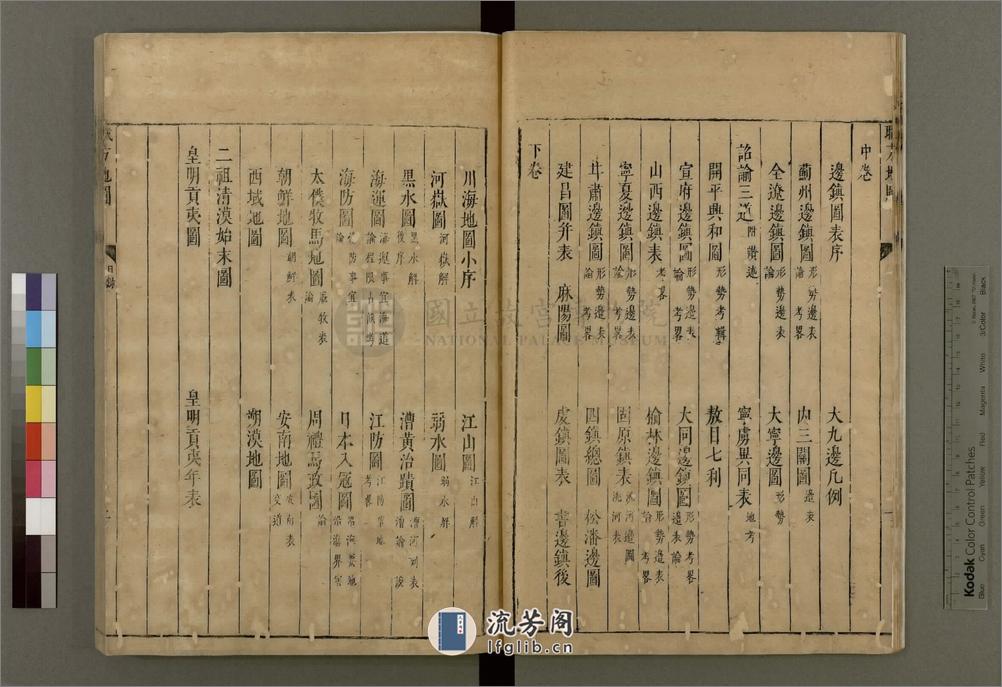 中卷
邊鎮圖表序 大九邊凡例
薊州邊鎮圖 形勢邊表 論 考畧 內三關圖 邊表
全遼邊鎮圖 形勢邊表 論 大寧邊圖 形勢
詔諭三道 附讚述 寧虜異同表 地考
開平興和圖 形勢考 敖目七利
宣府邊鎮圖 形勢邊表 論 考畧 大同邊鎮圖 形勢考畧 邊表論
山西邊鎮表 考畧 榆林邊鎮圖 形勢邊表 論 考畧
寧夏邊鎮圖 形勢邊表 論 考畧 固原鎮表 洮河邊圖 洮河表
甘肅邊鎮圖 形勢邊表 論 考畧 四鎮總圖 松潘邊圖
建昌圖并表 麻陽圖 虔鎮圖表 書邊鎮後
下卷
川海地圖小序 江山圖 江山解
河嶽圖 河嶽解 弱水圖 弱水解
黑水圖 黑水解 後序 漕黃治蹟圖 漕河
海運圖 海運事宜 海道 論 江防圖 江防 考畧
海防圖 海防事宜 論 日本入寇圖 沿海 沿海界
太僕牧馬地圖 牧表 論 周禮馬政圖 論
朝鮮地圖 朝鮮表 安南地圖 安南表 交道
西域地圖 朔漠地圖
二祖清漠始末圖
皇明貢夷圖 皇明貢夷年表
職方地圖
目錄
國立故宮博物院
NATIONAL PALACE MUSEUM
流芳阁
lfglib.cn
Kodak Color Control Patches
Blue Cyan Green Yellow Red Magenta White 3/Color Black